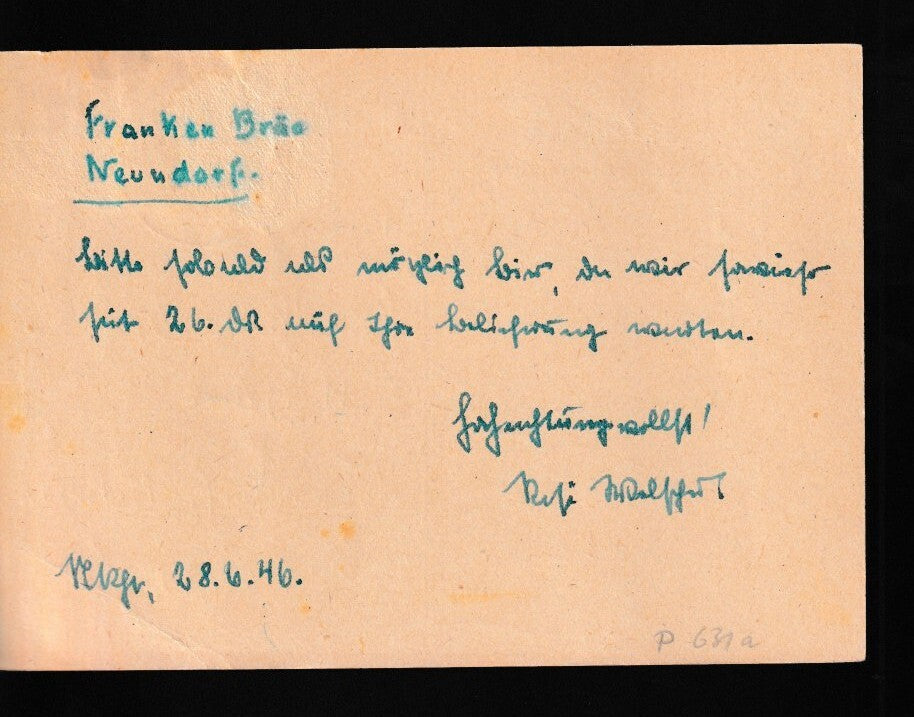 Franken Bräu
Neundorf.
Bitte sobald als möglich Bier, da wir
seit 26. ds auf Ihre Belieferung warten.
Hochachtungsvollst!
Resi
28.6.46.
P 631a